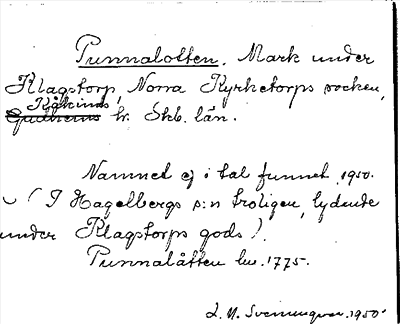 Punnalotten. Mark under
Klagstorp, Norra Kyrketorps socken,
Kåkinds
Gudhems hr. Skb. län.
Namnet ej i tal funnet 1950.
(I Hagelbergs s:n troligen, lydande
under Klagstorps gods).
Punnalåtten lm. 1775.
L. M. Svenungsson. 1950.